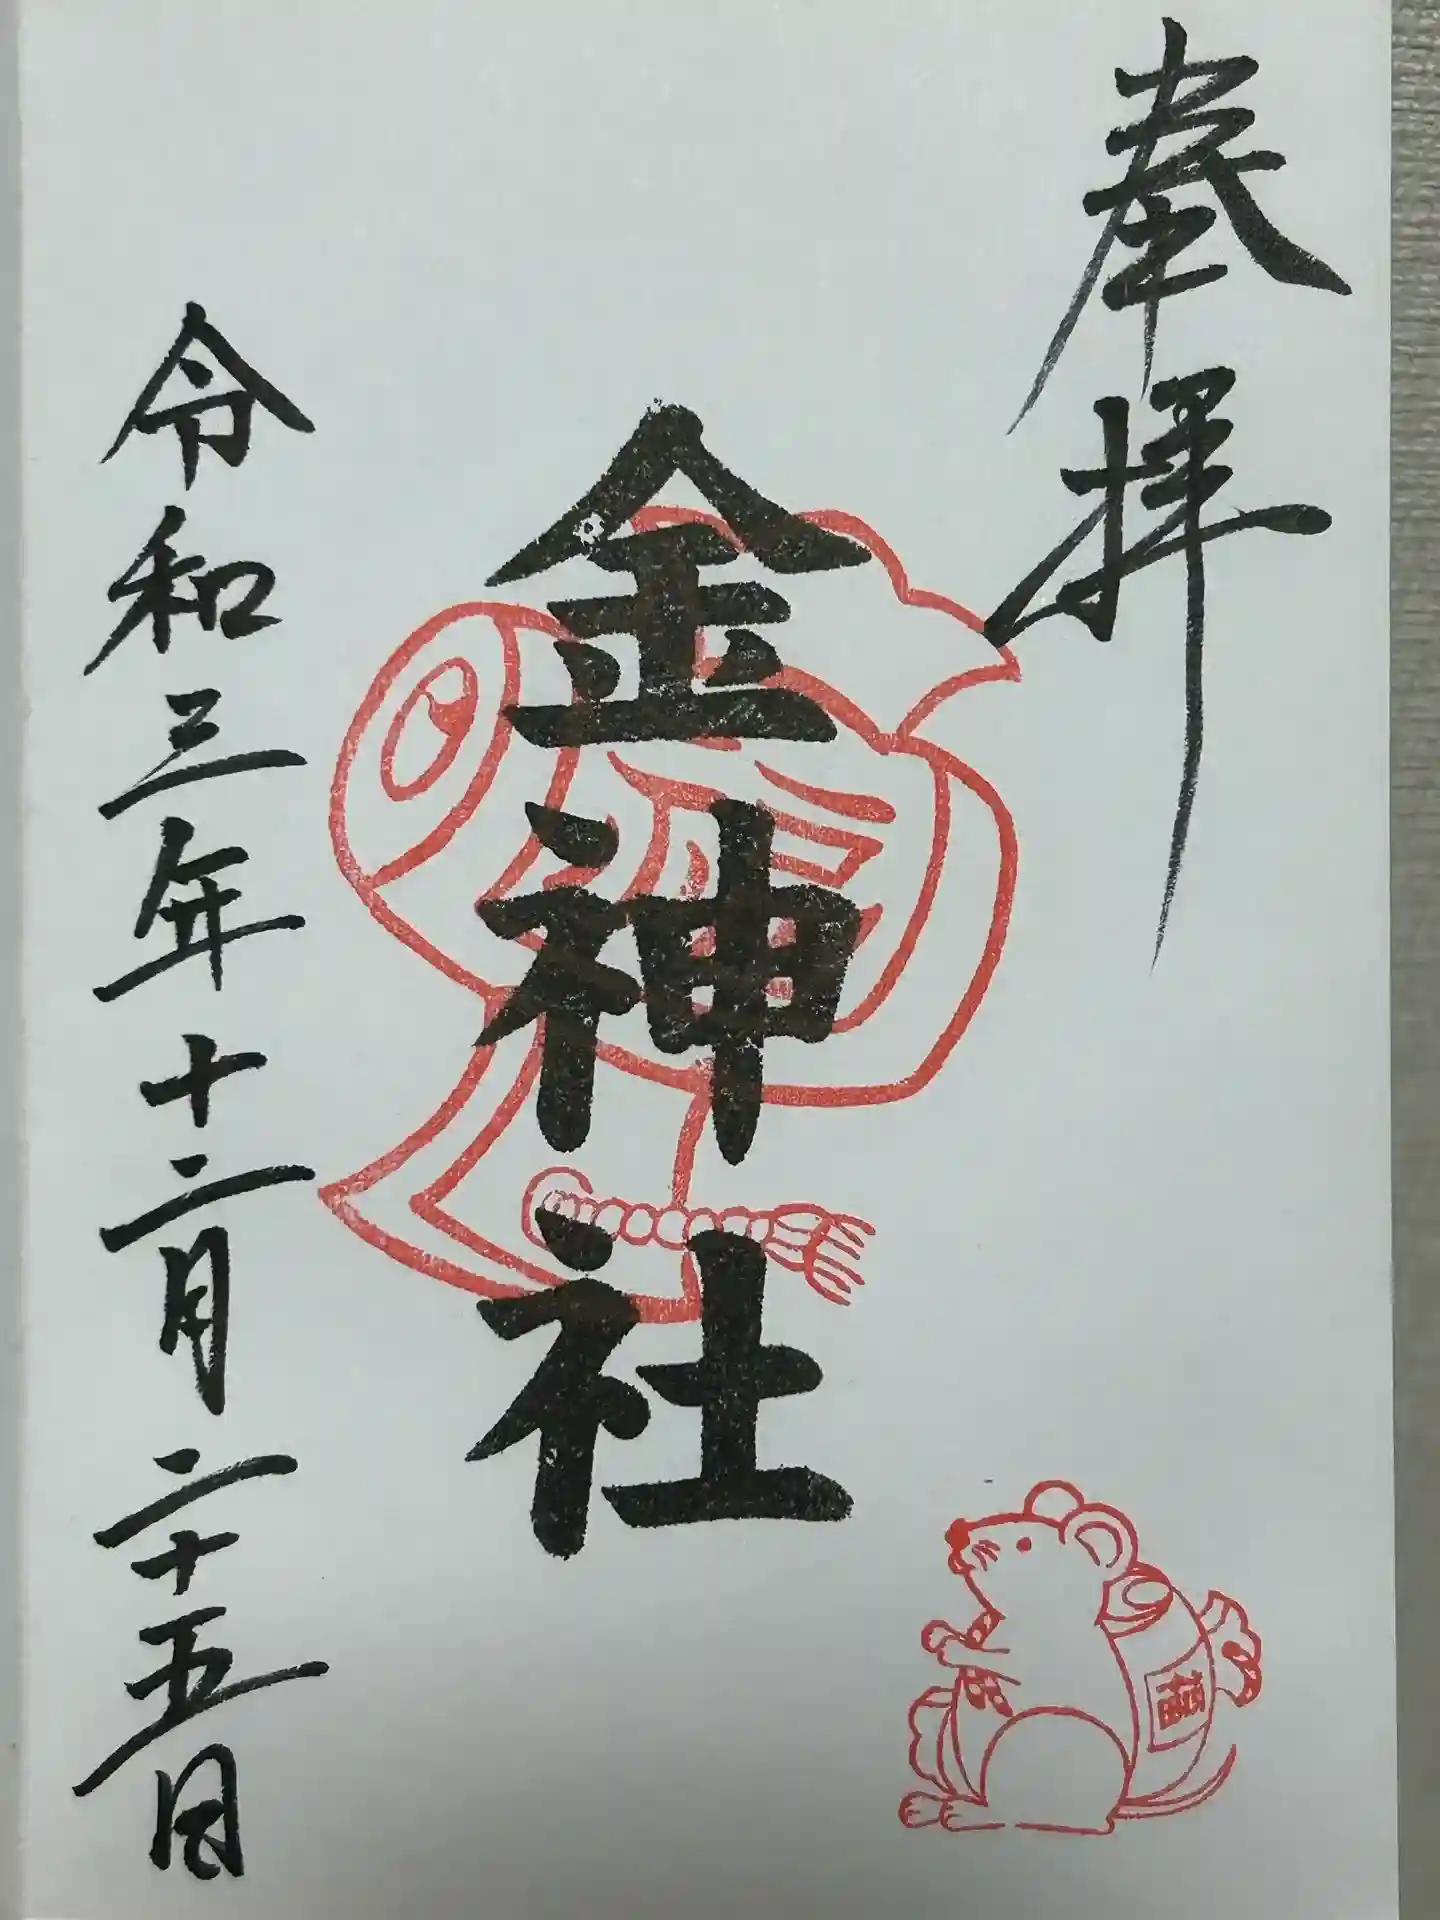 奉拝
金神社
令和三年十二月二十五日
福